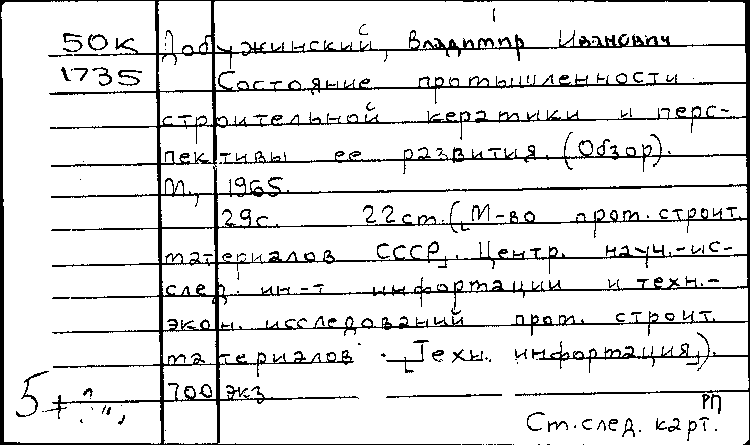 50к Добужинский, Владимир Иванович
1735 Состояние промышленности
строительной керамики и перс-
пективы ее развития. (Обзор).
М., 1965.
29с. 22см. ([М-во пром. строит.
материалов СССР]. Центр. науч.-ис-
след. ин-т информации и техн.-
экон. исследований пром. строит.
материалов. [Техн. информация]).
700 экз
РП
5+
Ст. след. карт.